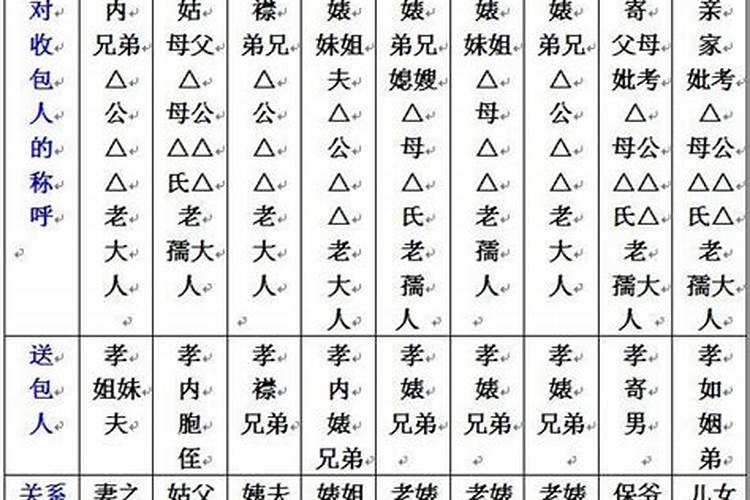 对 内 姑 襟 婊 婊 婊 婊 寄 亲
收 兄弟 母父 弟兄 妹姐 弟兄 妹姐 弟兄 父母 家
包 △ △ △ 夫 媳嫂 △ △ 妣考 妣考
人 公 母公 公 △ △ 母 公 △ △
的 △ △△ △ 公 母 △ △ 母公 母公
称 △ 氏△ △ △ △ △ △ △△ △△
呼 老 老 老 △ 氏 老 老 氏△ 氏△
大 孺大 大 老 老 孺 大 老 老
人 人 人 大 孺 人 人 孺大 孺大
人 人 人 人
送 孝 孝 孝 孝 孝 孝 孝 孝 孝
包 姐妹 内 襟 内 婊 婊 婊 寄 如
人 夫 胞 兄弟 婊 兄弟 兄弟 兄弟 男 姻
侄 兄弟 弟
关系 妻之 姑父 姨夫 婊姐 老婊 老婊 老婊 保爷 儿女